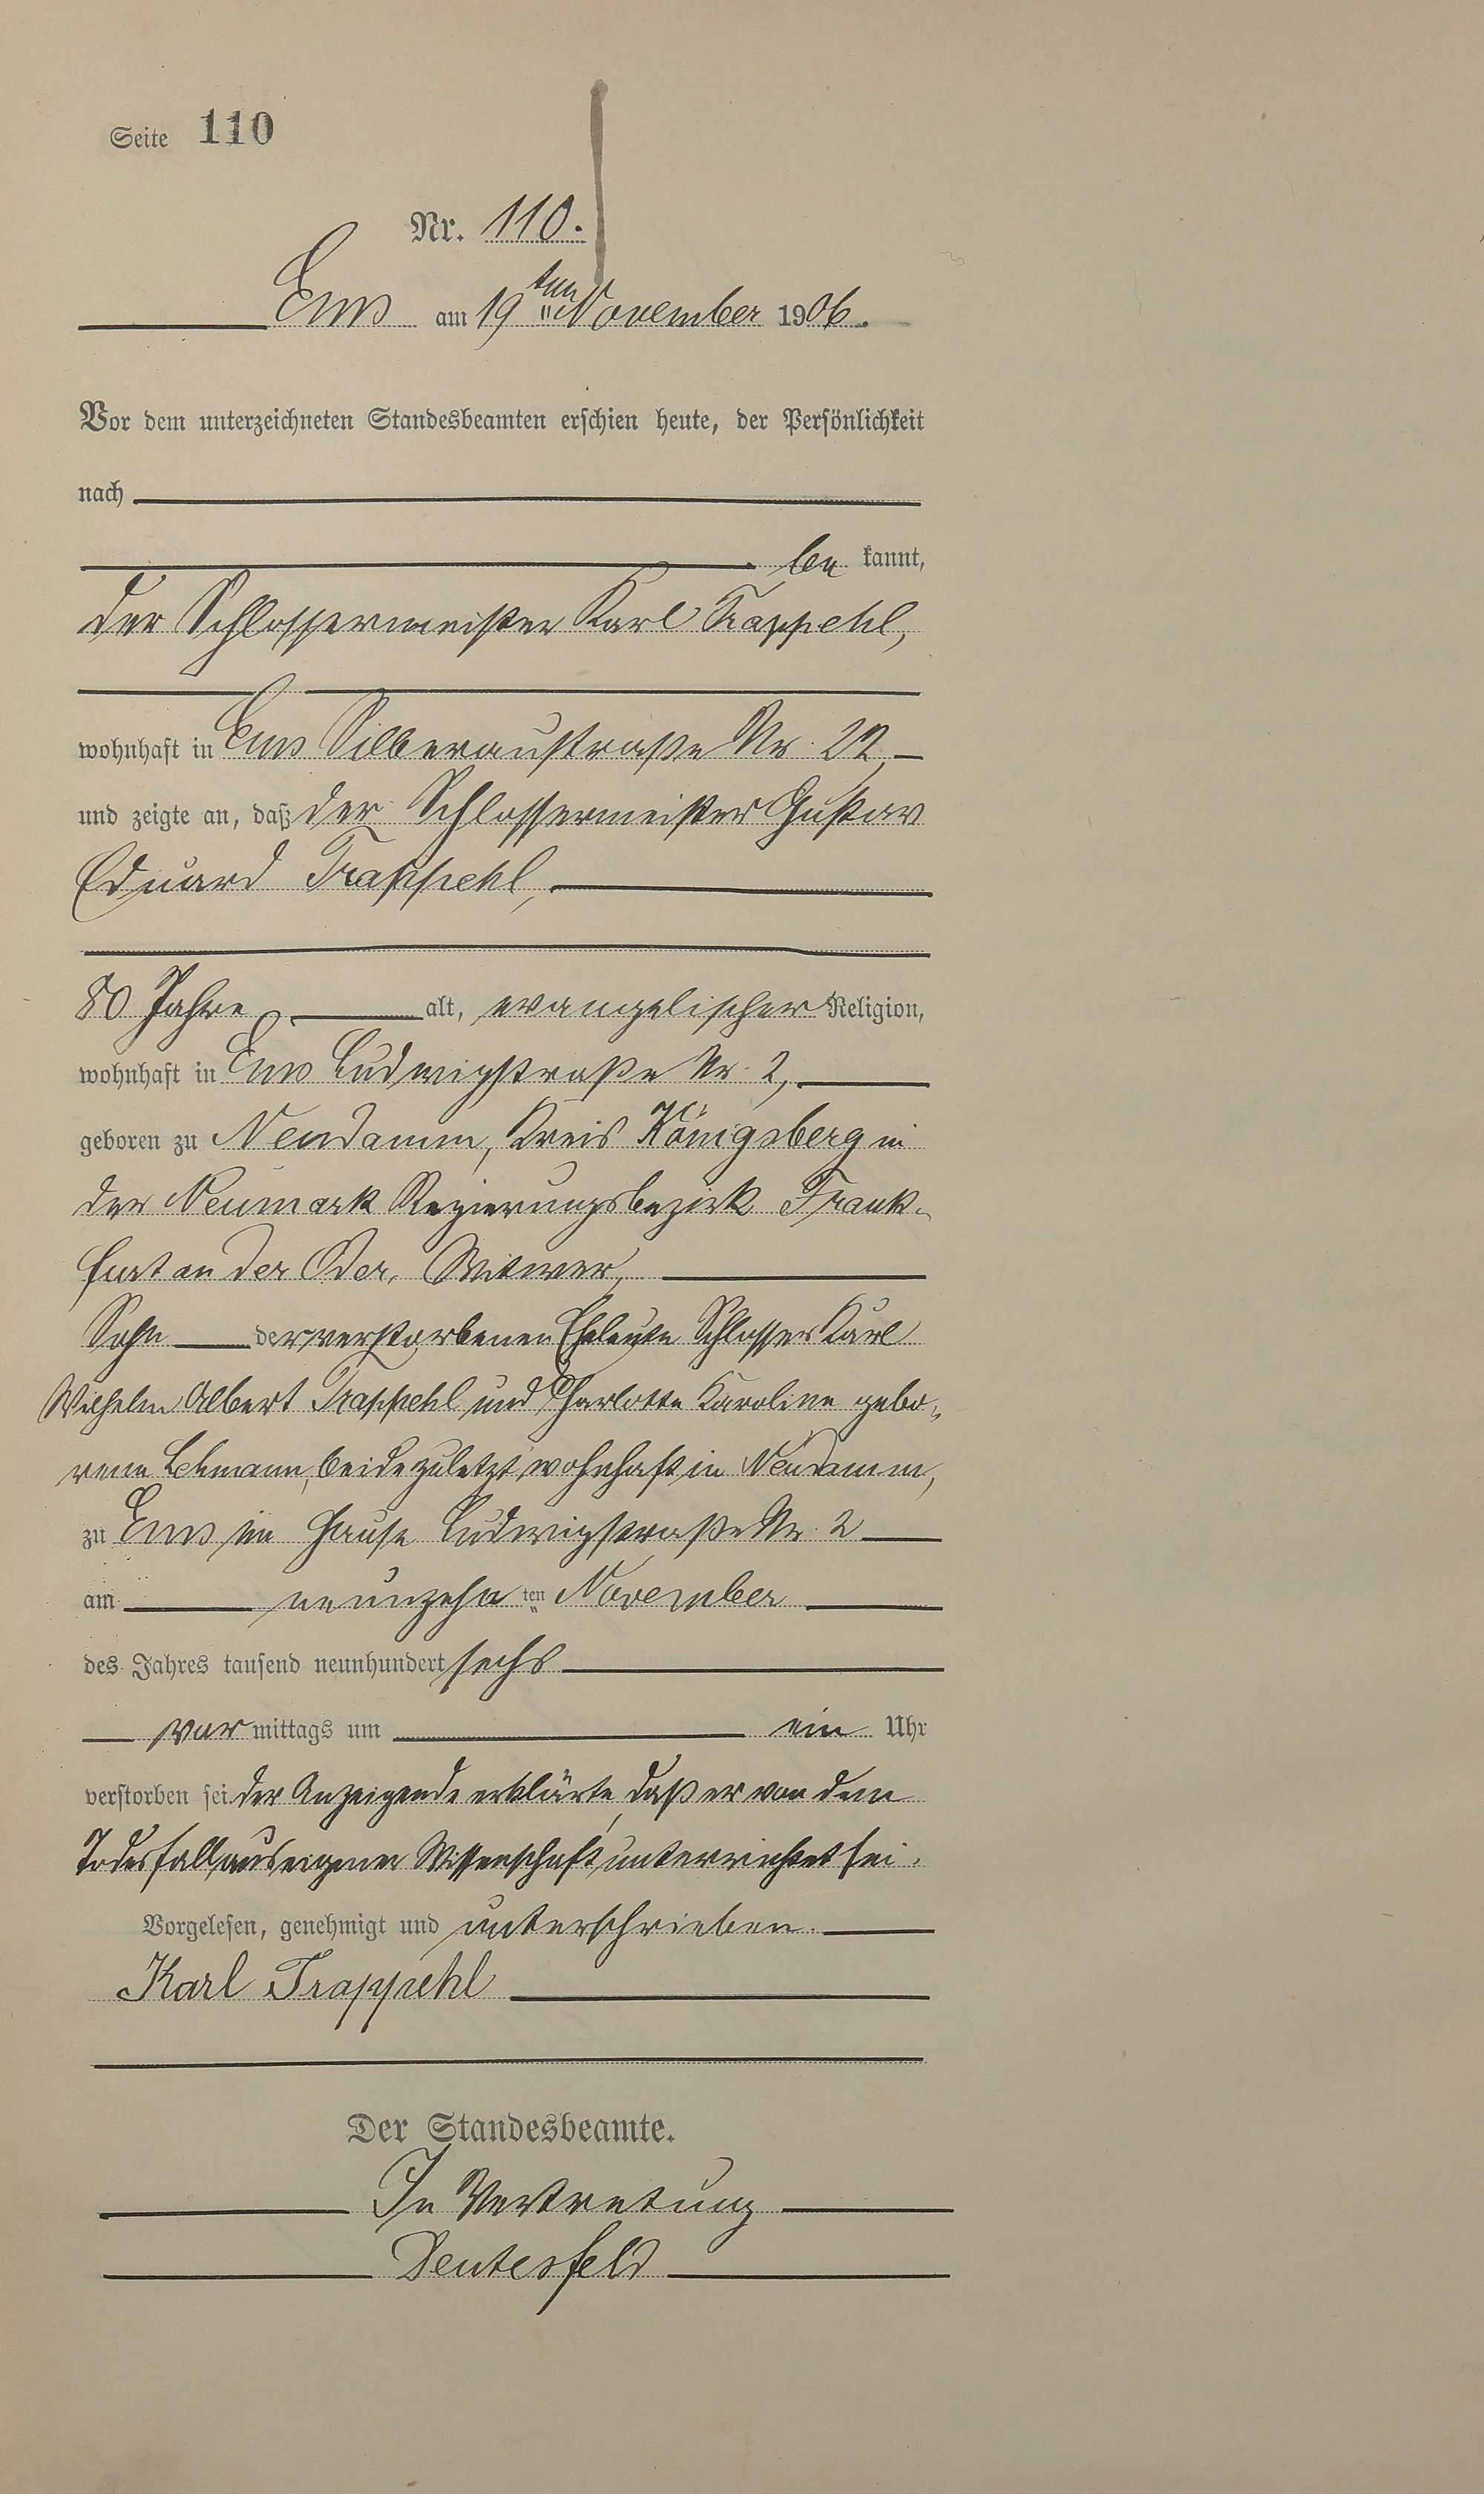 Seite 110
Nr. 110.
Ems am 19ten November 1906.
Vor dem unterzeichneten Standesbeamten erschien heute, der Persönlichkeit
nach
be kannt,
der Schlossermeister Karl Trappehl,
wohnhaft in Ems Silberaustraße Nr. 22,
und zeigte an, daß der Schlossermeister Gustav
Eduard Trappehl,
80 Jahre alt, evangelischer Religion,
wohnhaft in Ems Ludwigstraße Nr. 2,
geboren zu Neudamm, Kreis Königsberg in
der Neumark Regierungsbezirk Frank-
furt an der Oder, Witwer,
Sohn der verstorbenen Eheleute Schlosser Karl
Wilhelm Albert Trappehl und Charlotte Karoline gebo-
rene Lehmann, beide zuletzt wohnhaft in Neudamm,
zu Ems im Hause Ludwigstraße Nr. 2
am neunzehn ten November
des Jahres tausend neunhundert sechs
vor mittags um ein Uhr
verstorben sei. Der Anzeigende erklärte, daß er von dem
Todesfall aus eigener Wissenschaft unterrichtet sei.
Vorgelesen, genehmigt und unterschrieben.
Karl Trappehl
Der Standesbeamte.
In Vertretung
Deutesfeld